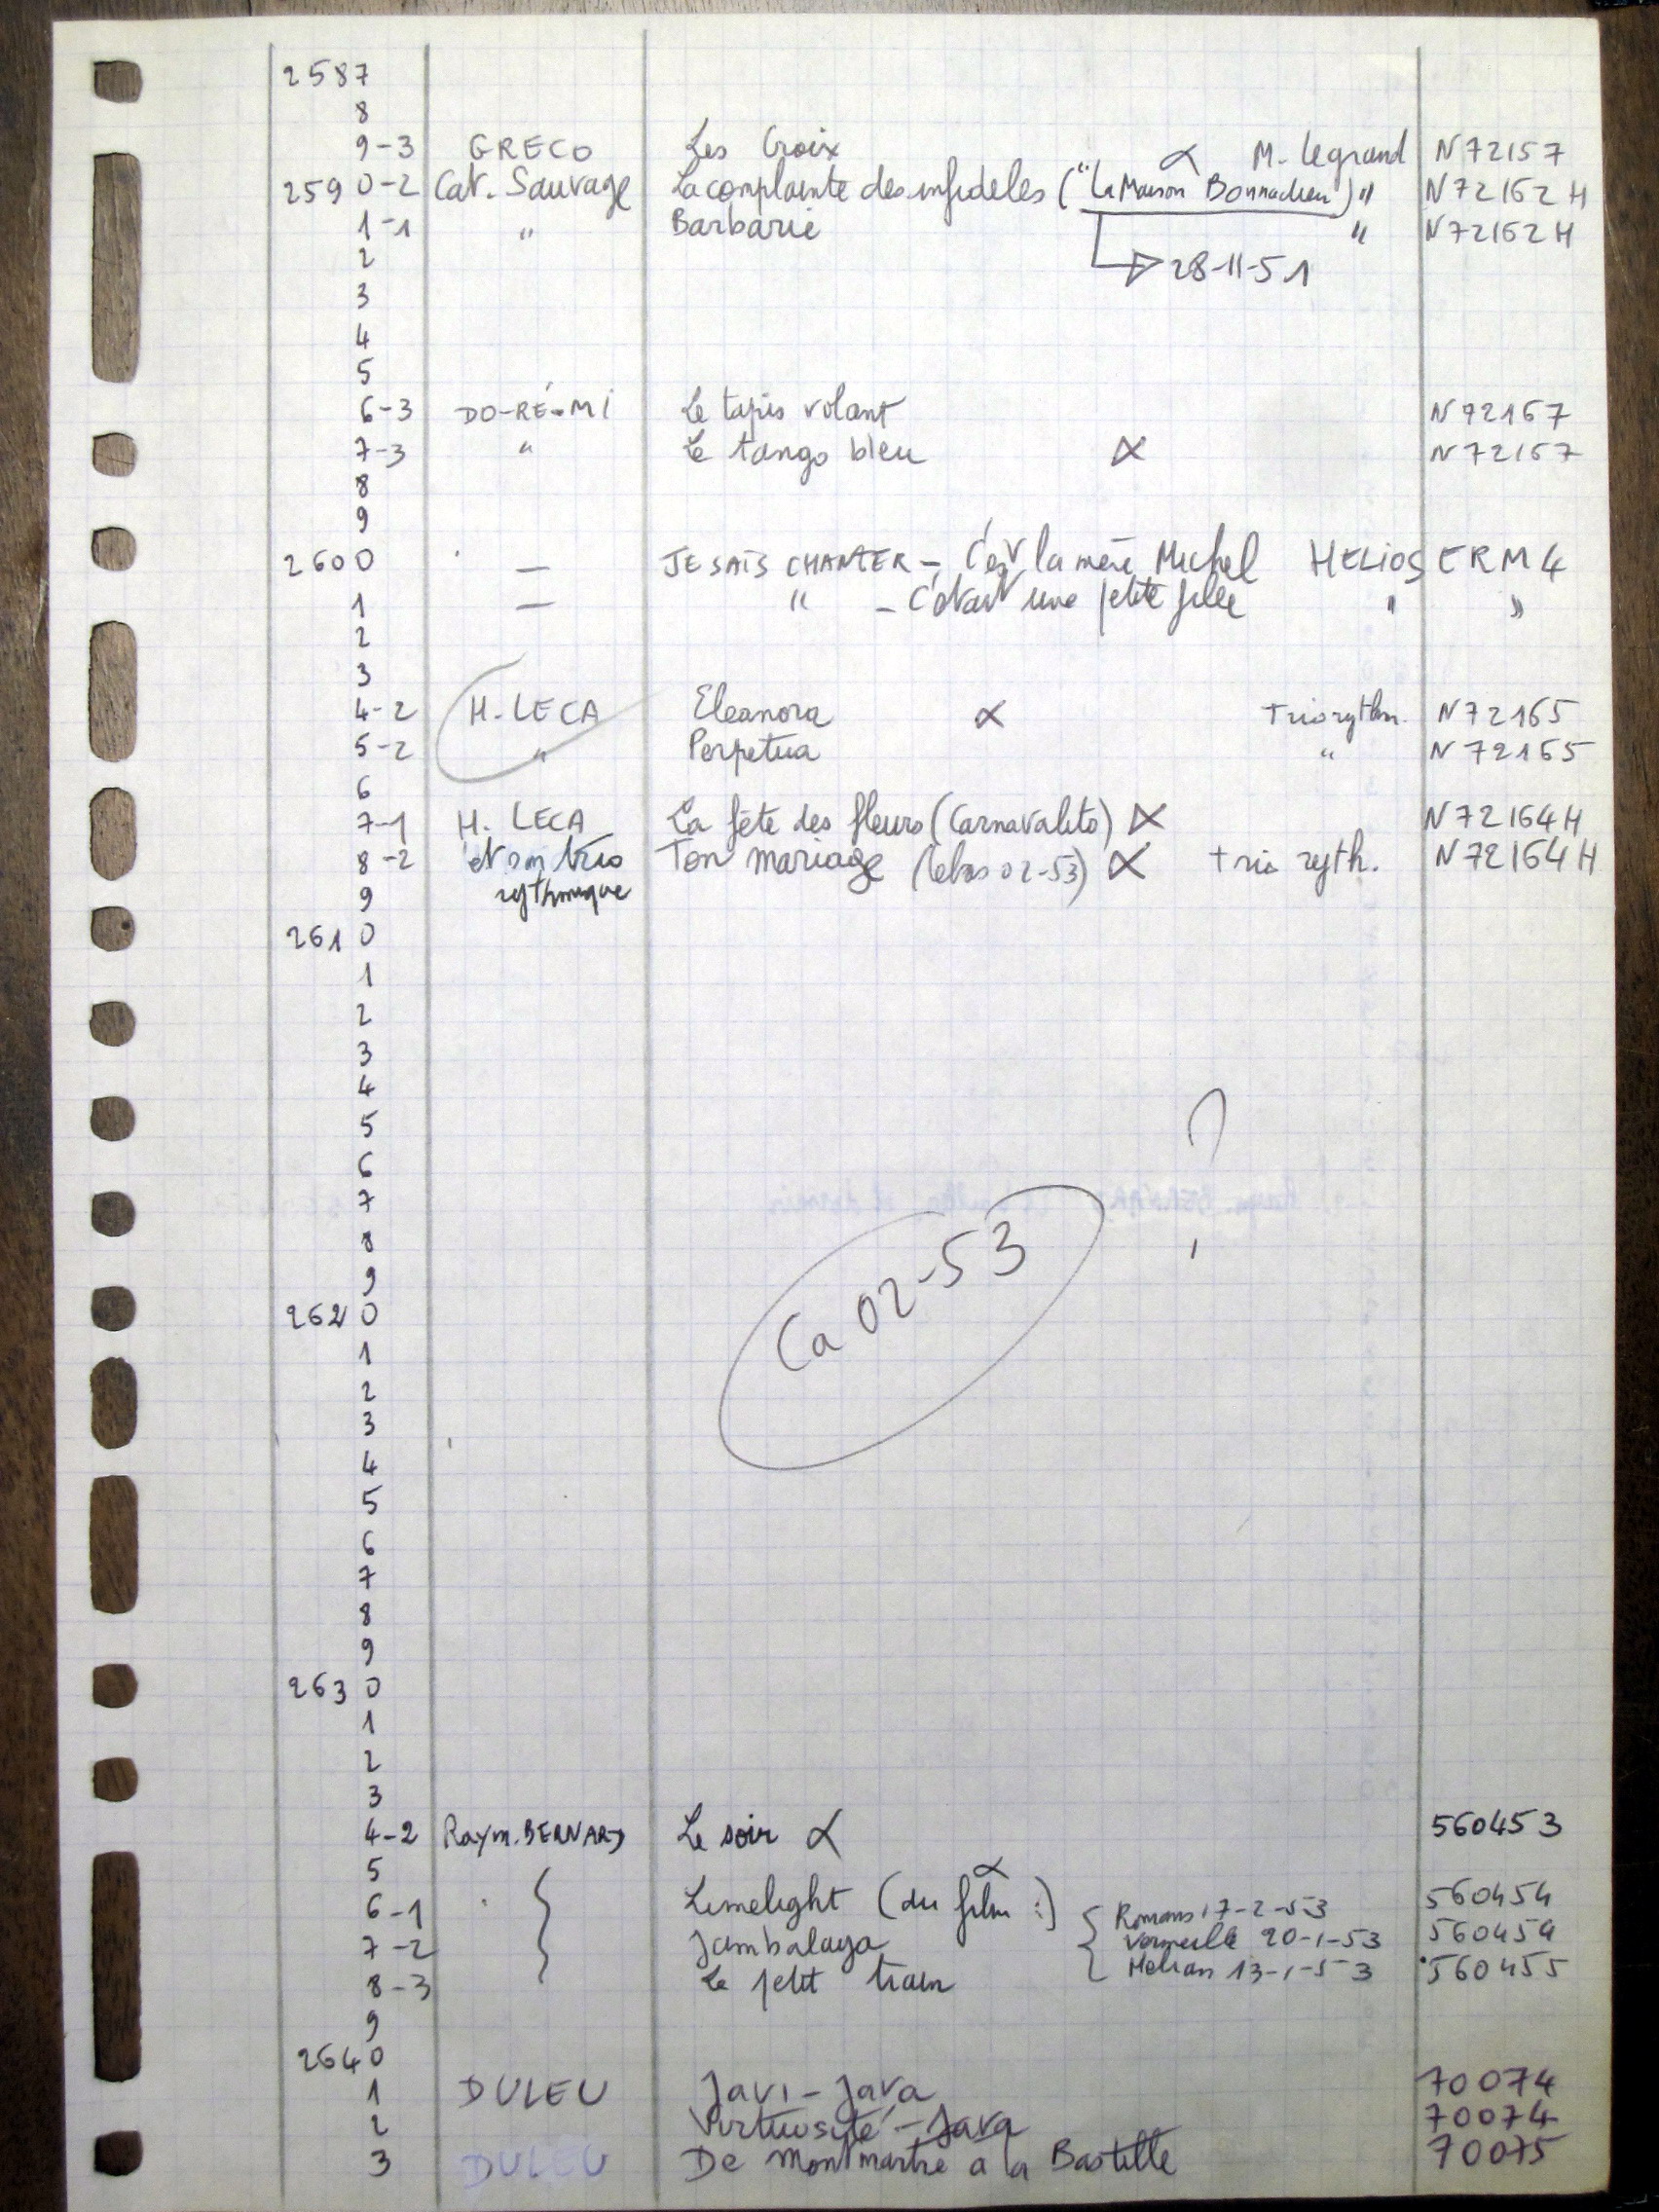 2587
8
9-3 GRECO Les Croix ∝ M. Legrand N72157
2590-2 Cat. Sauvage La complainte des infideles ("La Maison Bonnadieu") " N72162H
1-1 " Barbarie " N72162H
2 28-11-51
3
4
5
6-3 DO-RÉ-MI Le tapis volant N72167
7-3 " Le tango bleu ∝ N72167
8
9
2600 — JE SAIS CHANTER - C'est la mère Michel HELIOS ERM4
1 — " - C'était une petite fille " "
2
3
4-2 M. LECA Eleanora ∝ Trio rythm. N72165
5-2 " Perpetua " N72165
6
7-1 M. LECA La fête des fleurs (Carnavalito) ∝ N72164H
8-2 et son trio Ton mariage (lebas 02-53) ∝ trio ryth. N72164H
9 rythmique
2610
1
2
3
4
5
6
7
8
9
2620
1
2
3
4
5
6
7
8
9
Ca 02-53 ?
2630
1
2
3
4-2 Raym. BERNARD Le soir ∝ 560453
5
6-1 Limelight (du film :) ∝ Romans 17-2-53 560454
7-2 Jambalaya 20-1-53 560454
8-3 Le petit train 13-1-53 560455
9
2640
1 DULEU Javi-Java 70074
2 Virtuosité-Java 70074
3 DULEU De Montmartre à la Bastille 70075